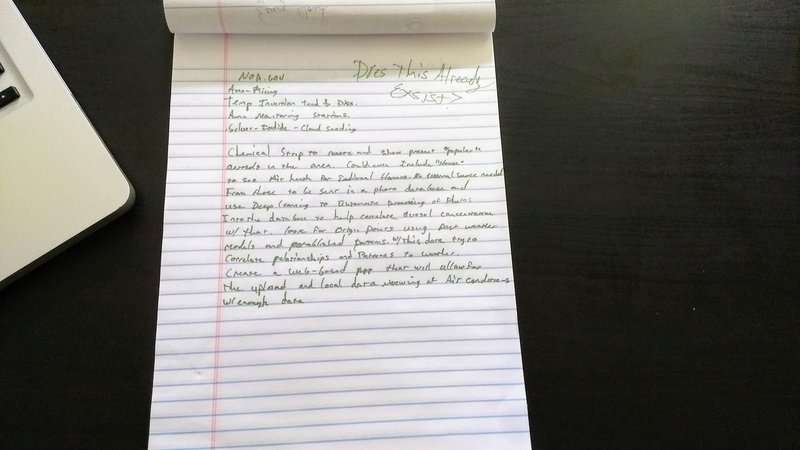 Does This Already
Exsist>
NOA.GOV
Temp Inversion
Area Monitoring Stations.
Silver-Iodide - Cloud Seeding
Chemical Strip to and show present "popular"
aerosols in the area. Could even Include "House"
to see Air health for Individual Homes. No External source needed
From those to be sent in a photo database and
use Deep learning to processing of Photos
Into the database to help correlate aerosol concentrations
w/ that. look for Origin Points using Past weather
models and patterns. w/This data try to
Correlate relationships and Patterns to weather.
Create a Web-based App that will allow for
The upload and local data viewing of Air conditions
w/ enough data